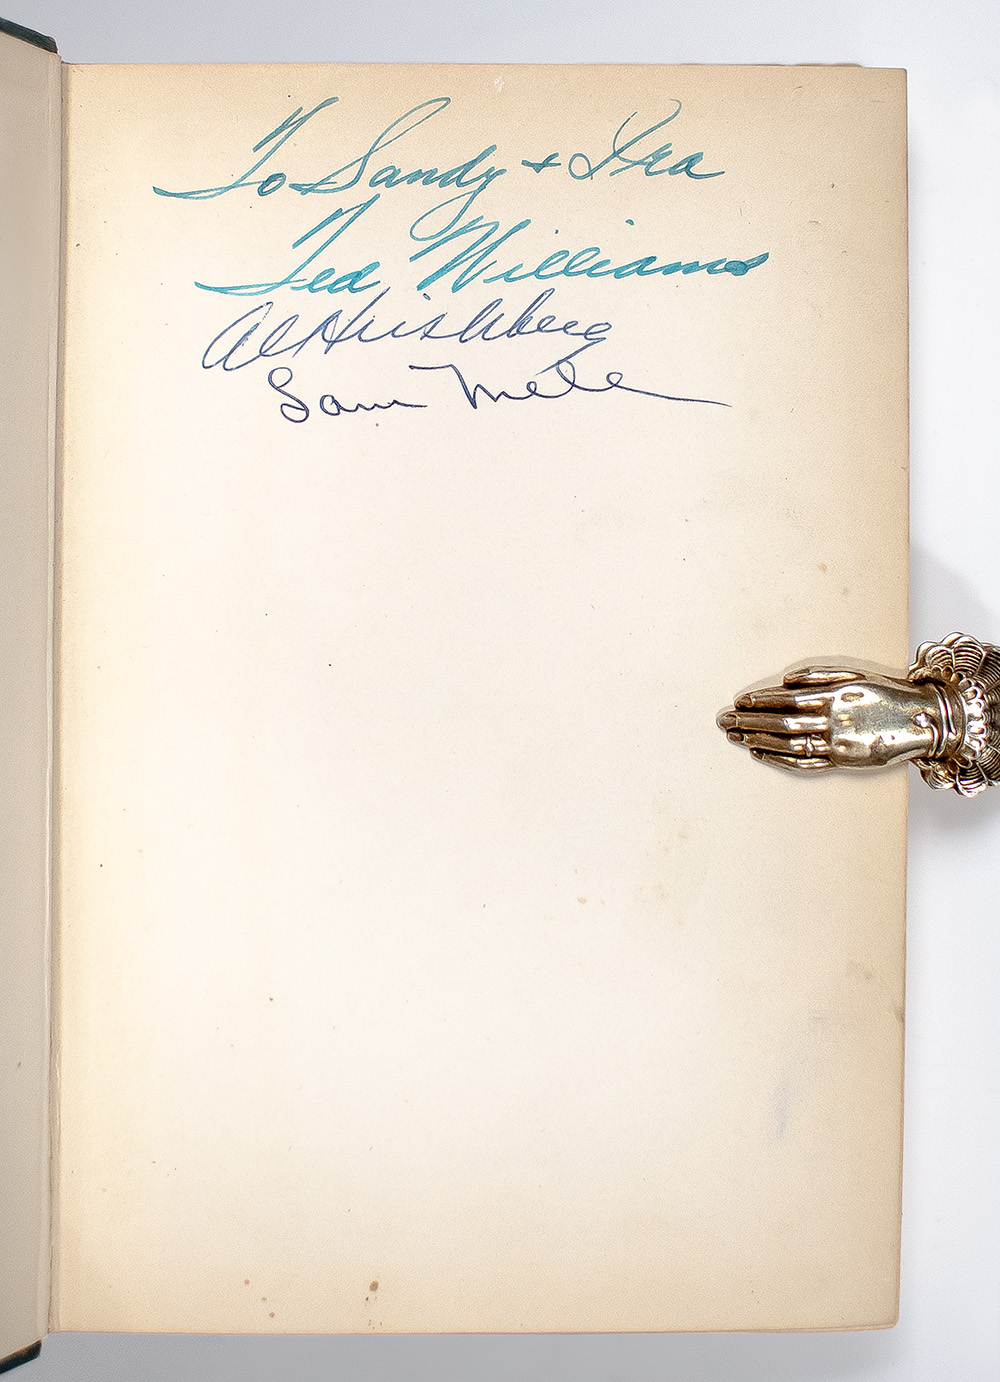 To Sandy + Ira
Ted Williams
Al Hirshberg
Sam Mele